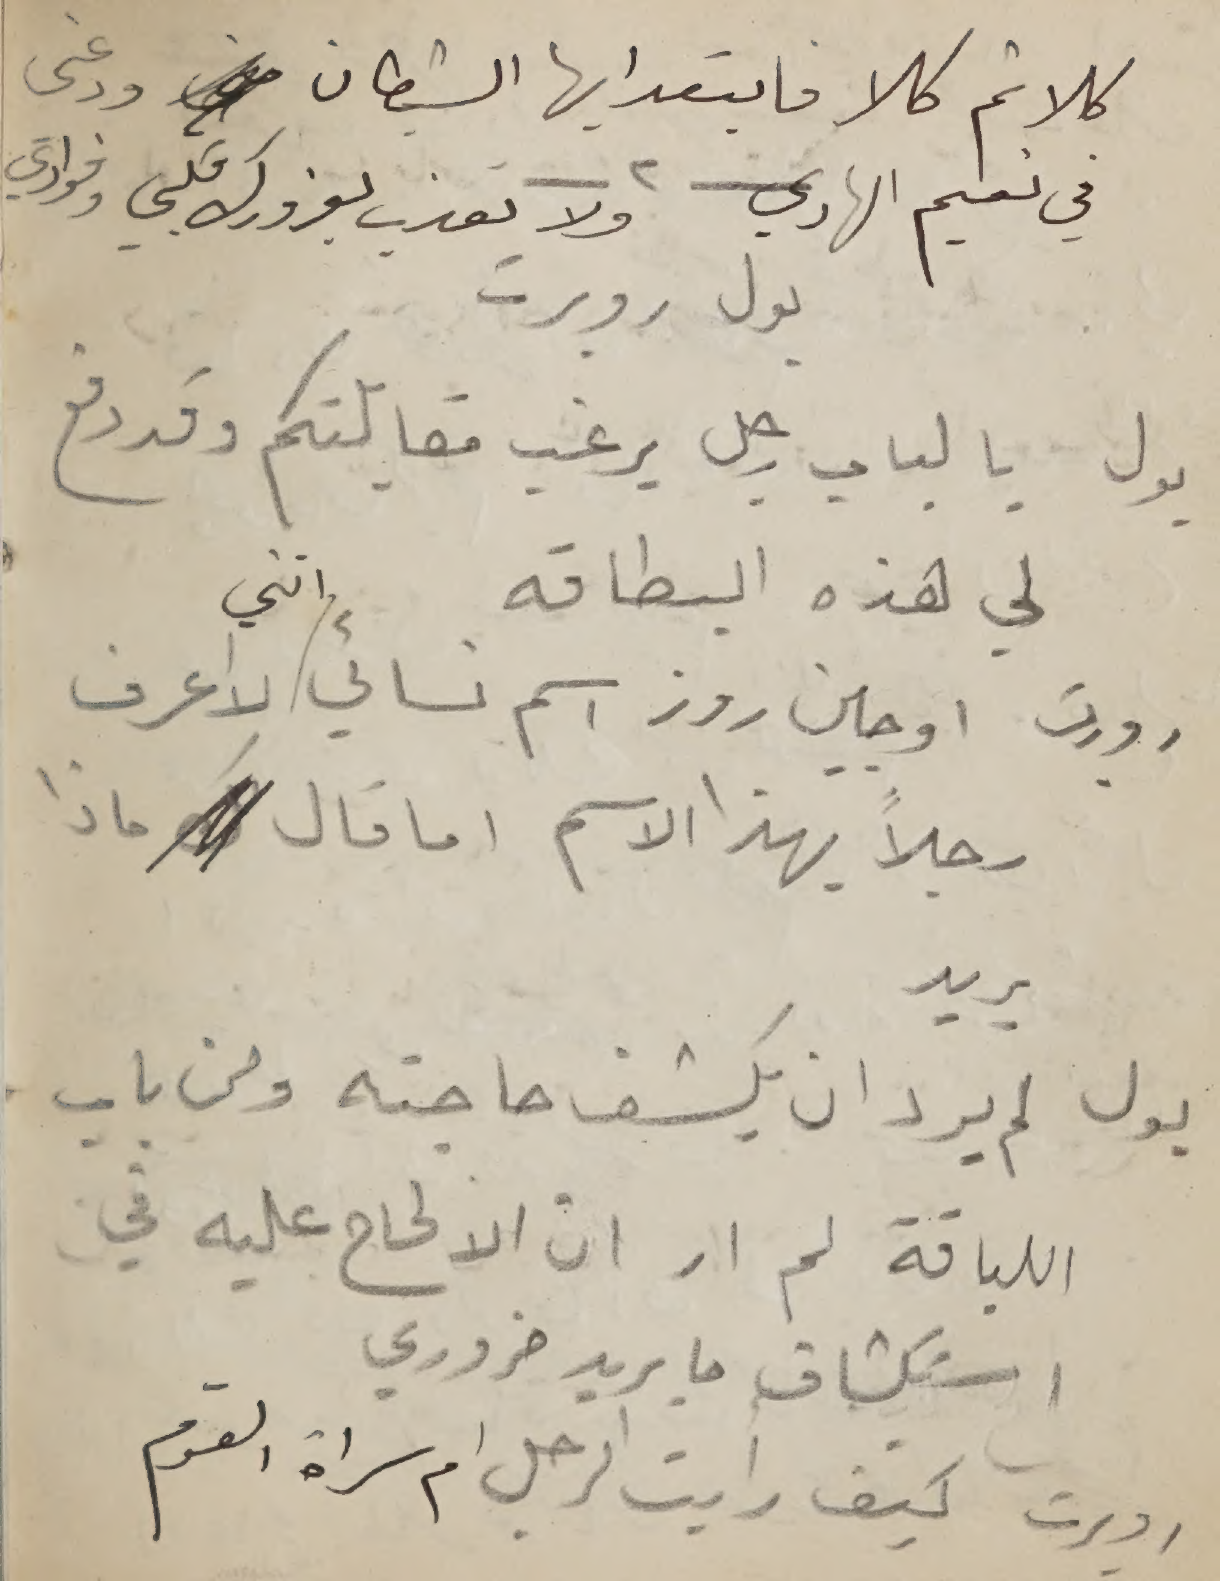 كلا ثم كلا فابتعد ايها الشيطان ودعني
في نعيم الهادي ٢ ولا تعذب بغرورك قلبي وفوادي
بول روبرت
بول بالباب رجل يرغب مقابلتكم وقد دفع
لي هذه البطاقه
انني
روبرت اوجين روز اسم نسائي لا اعرف
رجلاً بهذا الاسم اما قال ماذا
يريد
بول لم يرد ان يكشف حاجته ومن باب
اللباقة لم ار ان الالحاح عليه في
استكشاف ما يريد ضروري
روبرت كيف رايت الرجل ام سراة القوم